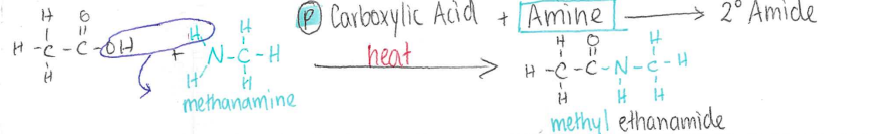 Ⓟ Carboxylic Acid + Amine → 2° Amide
H O
H - C - C - OH + H
H
H N - C - H
H H
methanamine
heat
H O H
H - C - C - N - C - H
H H H
methyl ethanamide